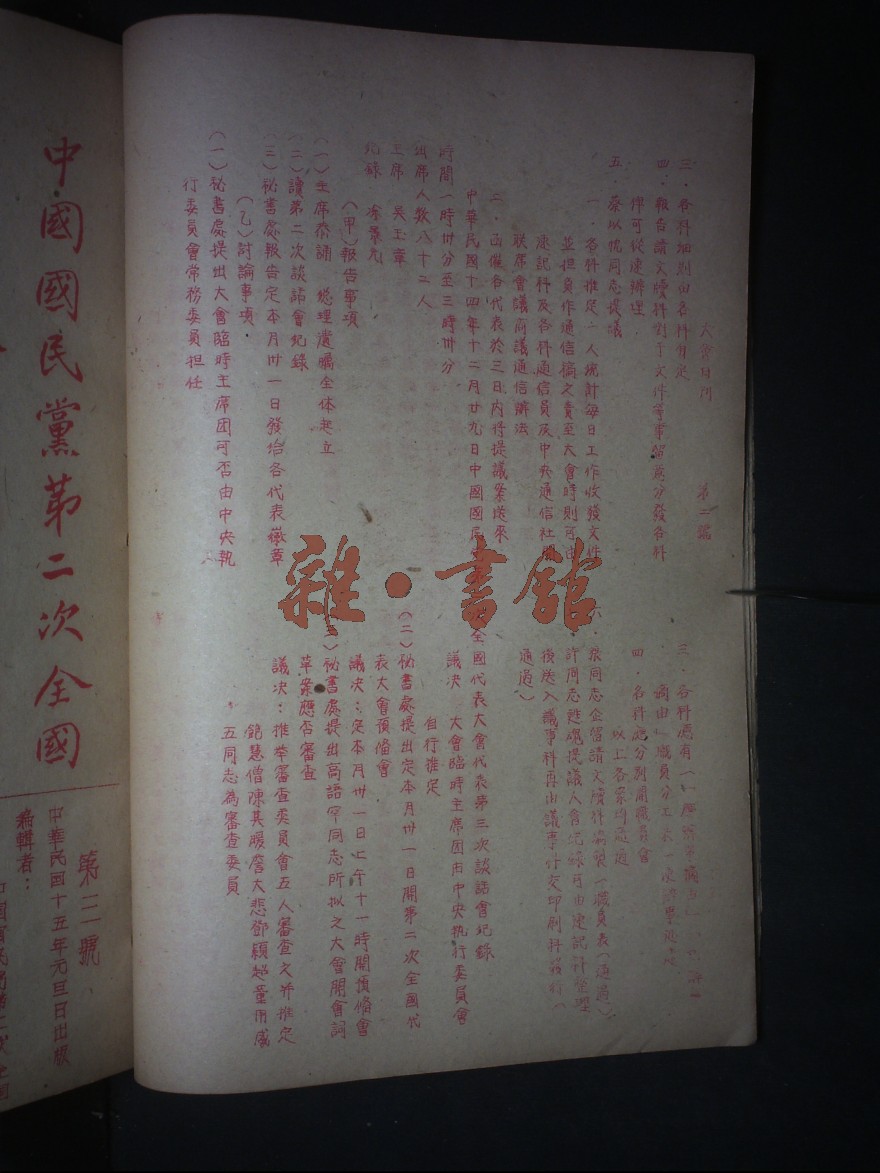 大會日刊 第二號
三．各科細則由各科自定
四．報告請文牘科對于文件等事留底分發各科
俾可從速辦理
五．蔡以忱同志提議
一．各科推定二人統計每日工作收發文件
並担負作通信稿之責至大會時則可由
速記科及各科通信員及中央通信社開
联席會議商議通信辦法
二．函催各代表於三日內将提議案送來
三．各科應有
四．各科應分别開職員會
以上各案均通過
六．張同志企留請文牘科編製一職員表（通過）
許同志甦魂提議人會記錄可由速記科整理
後送入議事科再由議事科交印刷科發行（
通過）
中華民國十四年十二月廿九日中國國民黨
全國代表大會代表第三次談話會紀錄
時間 一時卅分至三時卅分
出席人数八十二人
主席 吴玉章
紀錄
（甲）報告事項
（一）主席恭誦 總理遺囑全体起立
（二）讀第二次談話會紀錄
（三）秘書處報告定本月卅一日發给各代表徽章
（乙）討論事項
（一）秘書處提出大會臨時主席团可否由中央執
行委員會常務委員担任
議决 大會臨時主席团由中央执行委員會
自行推定
（二）秘書處提出定本月卅一日開第二次全國代
表大會預備會
議决：定本月卅一日上午十一時開預備會
秘書處提出高語罕同志所拟之大會開會詞
草案應否審查
議决：推举審查委員會五人審查文并推定
詹大悲鄧穎超董用威
五同志為審查委員
中國國民黨第二次全國
第三號
中華民国十五年元旦日出版
編輯者：
雜·書館